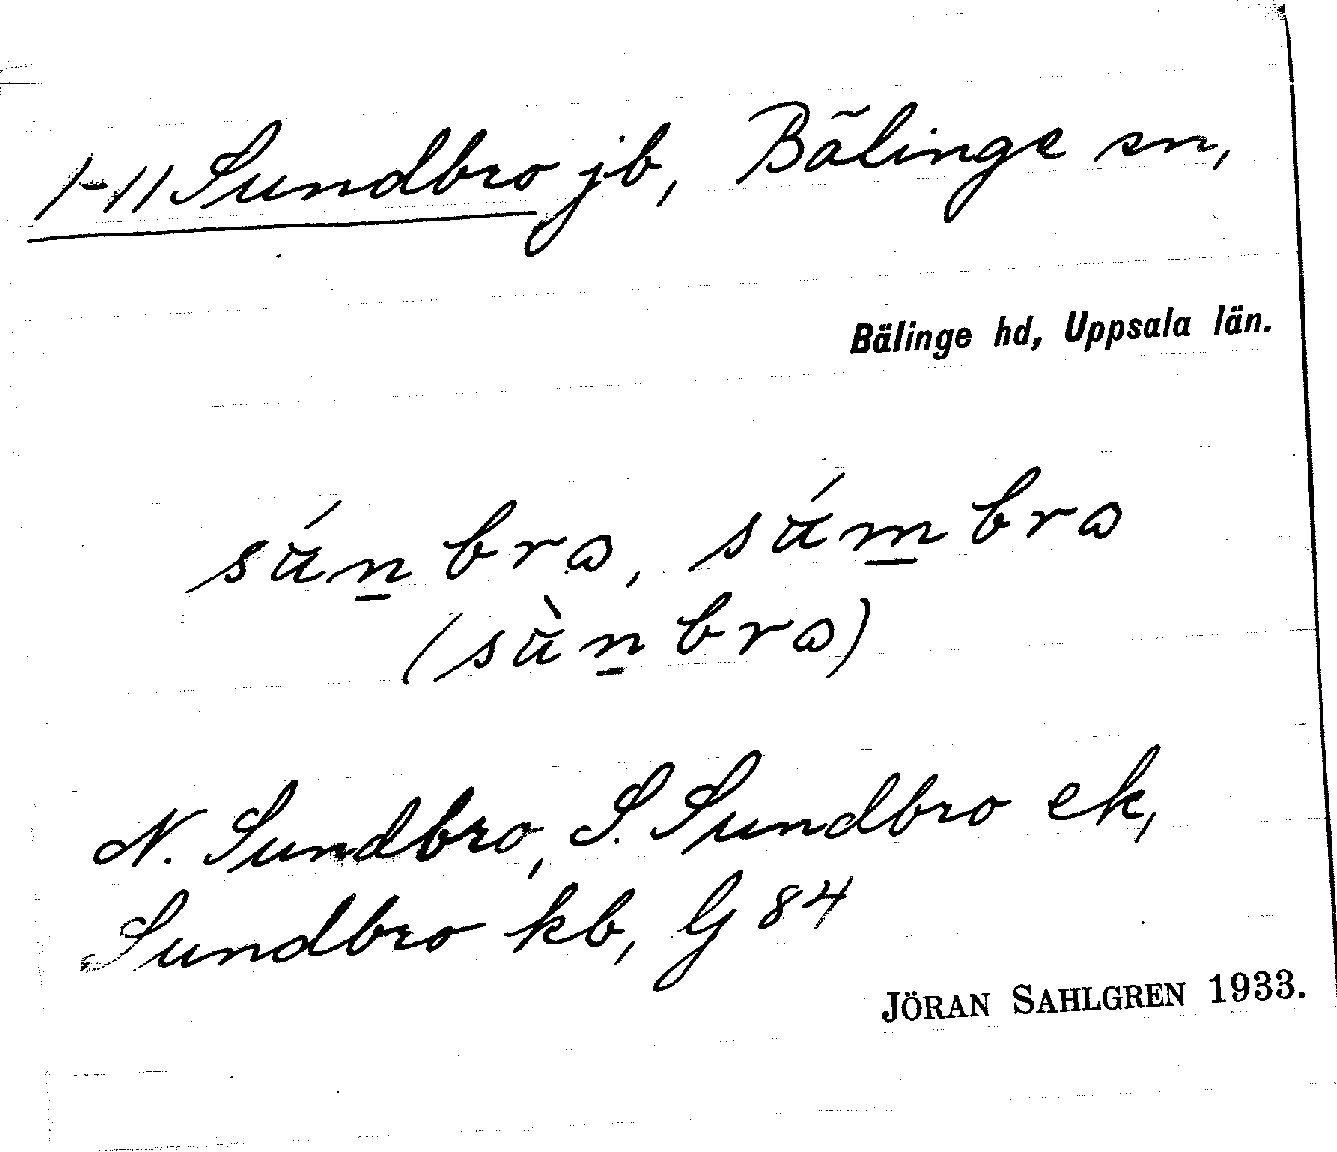 1-11 Sundbro jb, Bälinge sn,
Bälinge hd, Uppsala län.
sún̲ brɷ, súm̲ brɷ
(sùn̲ brɷ)
N. Sundbro, S. Sundbro ek,
Sundbro kb, G 84
JÖRAN SAHLGREN 1933.